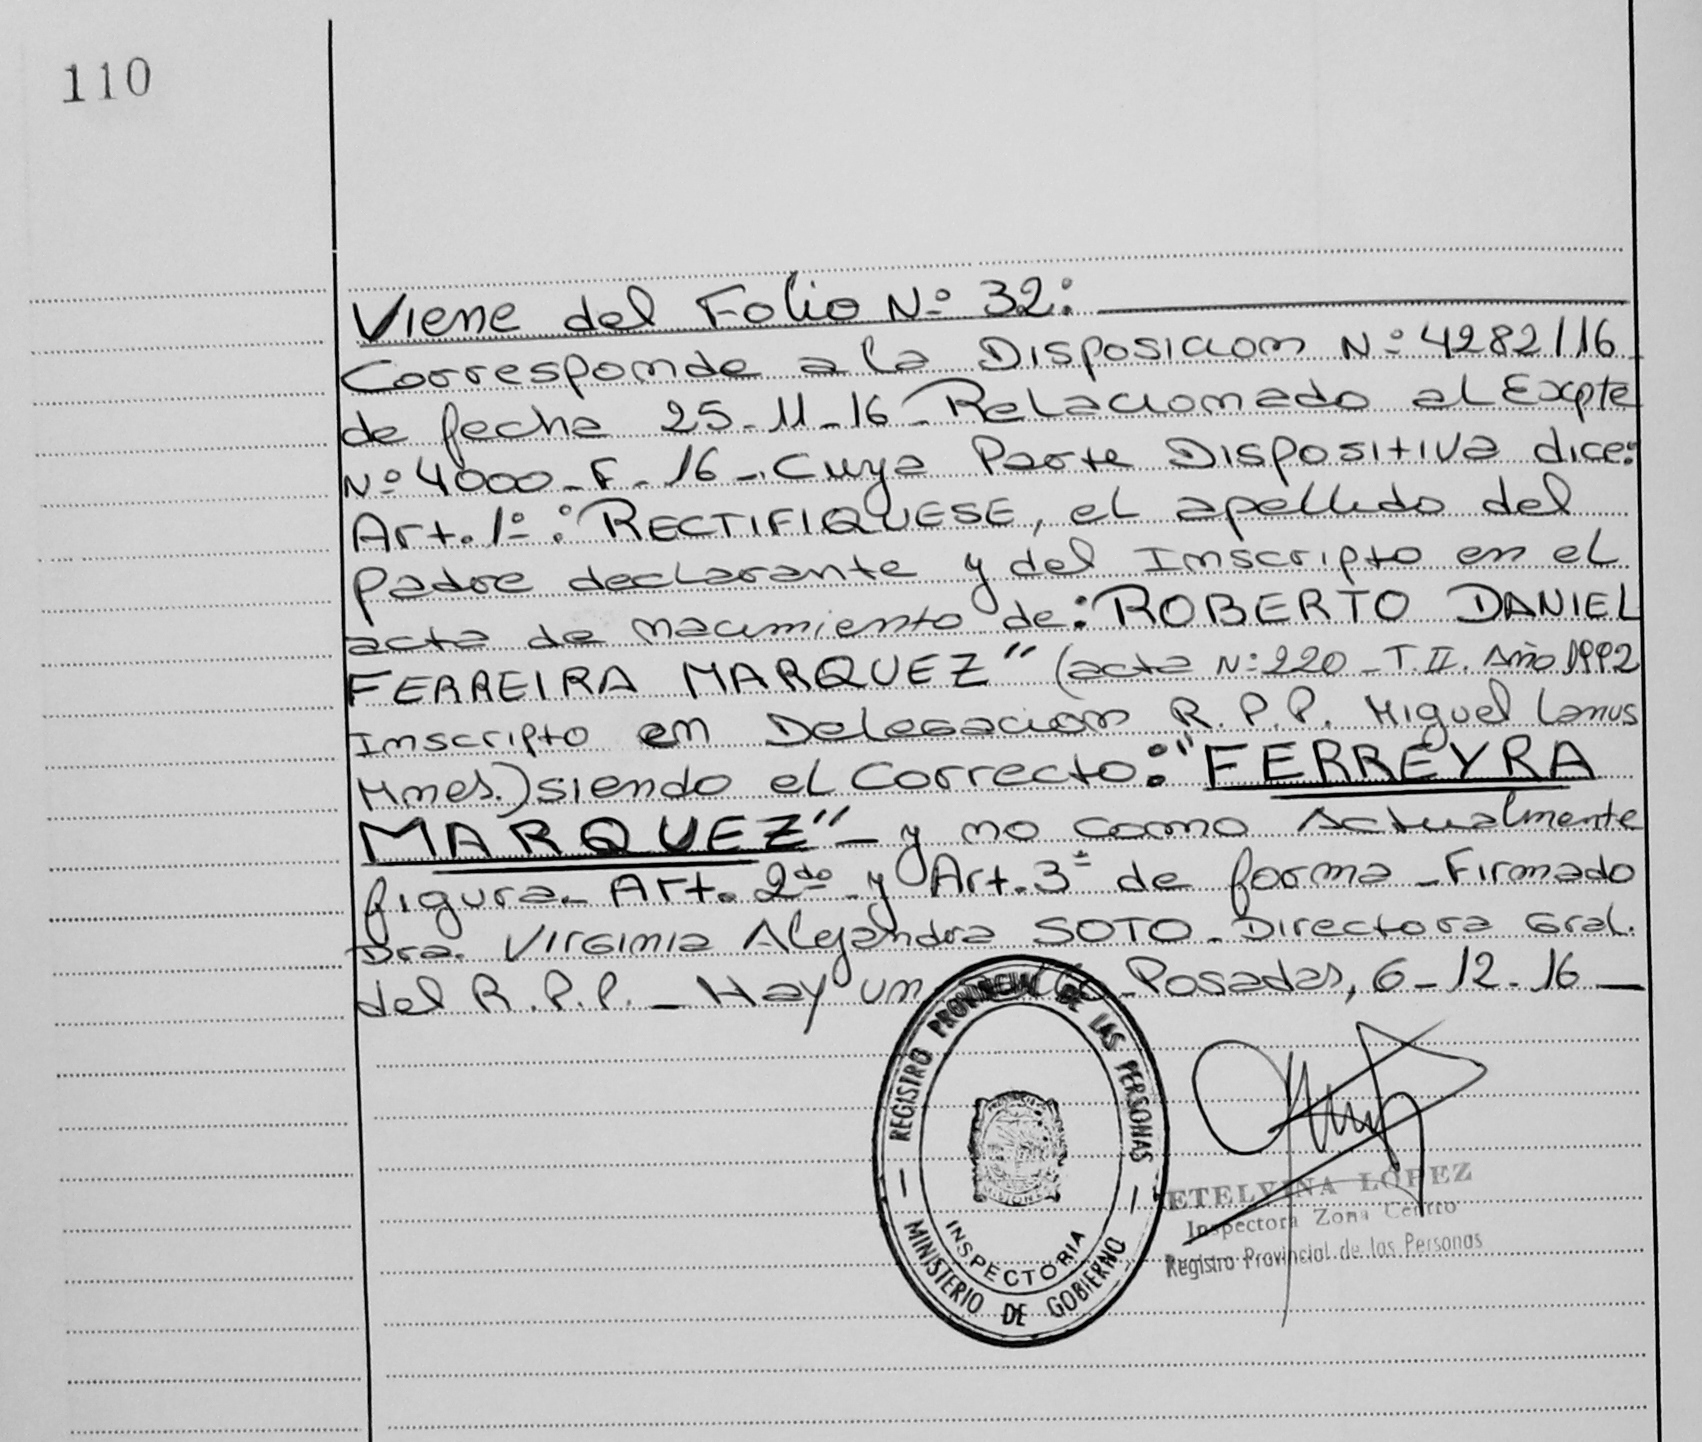 110
Viene del Folio Nº 32:
Corresponde a la Disposicion Nº 4282/16
de fecha 25-11-16- Relacionado al Expte
Nº 4000-F-16-. Cuya Parte Dispositiva dice:
Art. 1º: RECTIFIQUESE, el apellido del
padre declarante y del Inscripto en el
acta de nacimiento de: ROBERTO DANIEL
FERREIRA MARQUEZ" (acta Nº 220-T.II. Año 1992
Inscripto en Delegacion R.P.P. Miguel Lanus
Mnes.) siendo el correcto: "FERREYRA
MARQUEZ"- y no como Actualmente
figura- Art. 2do y Art. 3º de forma - Firmado
Dra. Virginia Alejandra SOTO - Directora Gral.
del R.P.P. - Hay un - Posadas, 6-12-16 -
REGISTRO PROVINCIAL DE LAS PERSONAS
PROVINCIA
MISIONES
INSPECTORIA
MINISTERIO DE GOBIERNO
ETELVINA LÓPEZ
Inspectora Zona Centro
Registro Provincial de las Personas